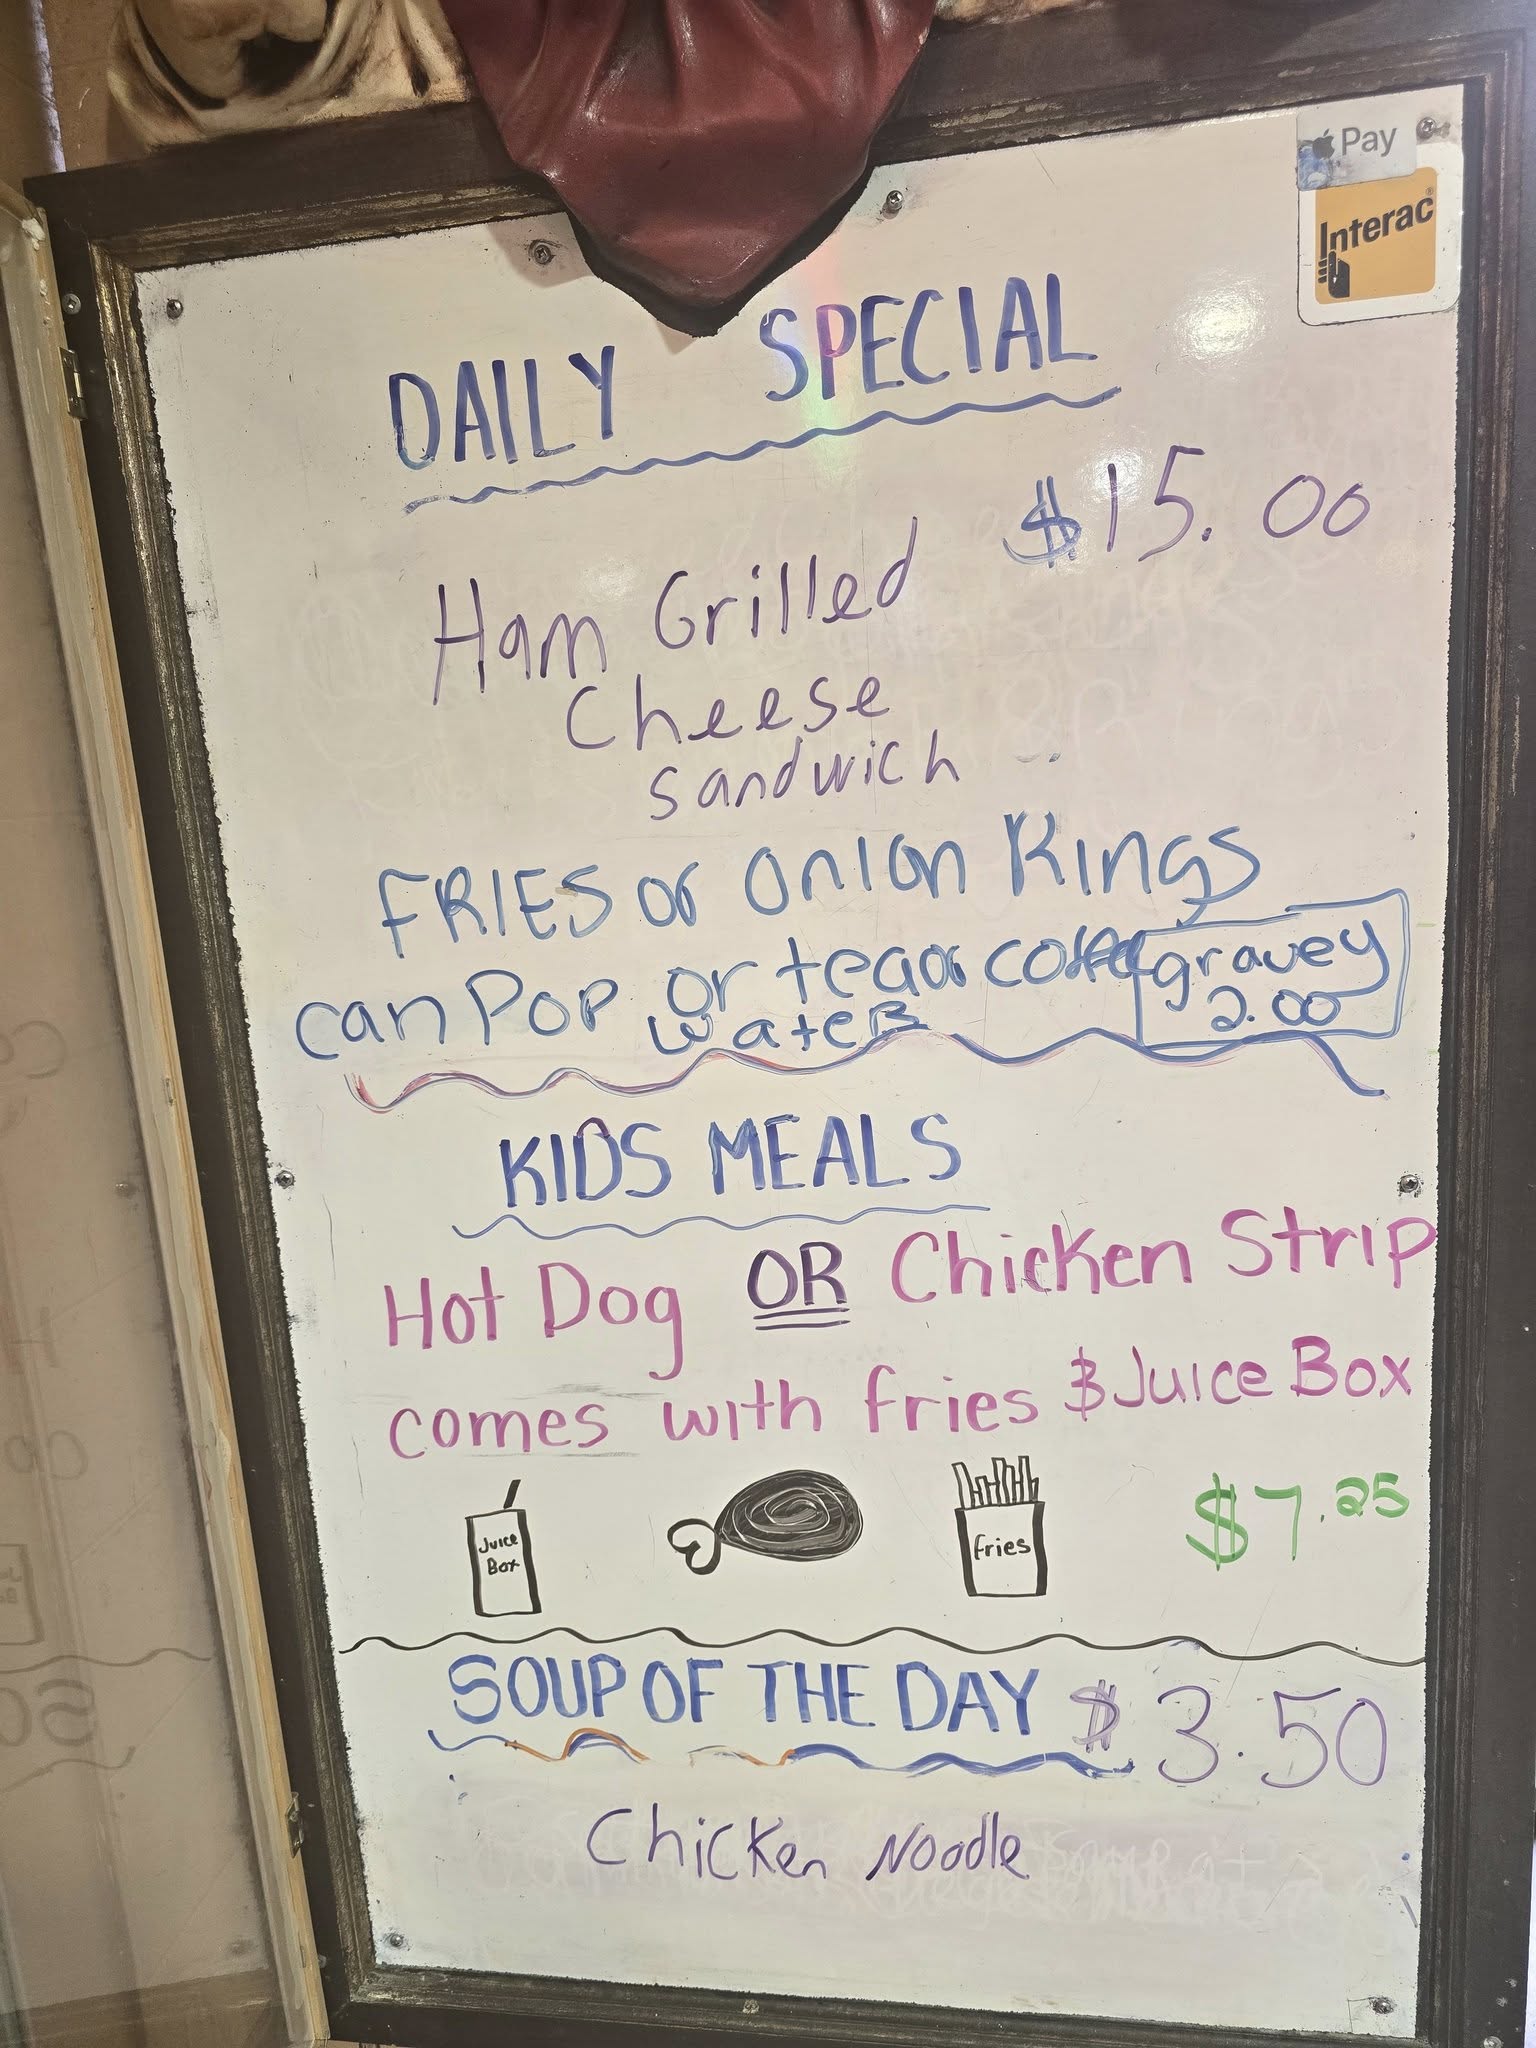 Pay
Interac
DAILY SPECIAL
$15.00
Ham Grilled
Cheese
sandwich
FRIES or Onion Rings
can Pop or tea or coffee
water
gravey
2.00
KIDS MEALS
Hot Dog OR Chicken Strip
comes with fries & Juice Box
Juice
Box
fries
$7.25
SOUP OF THE DAY $3.50
Chicken Noodle